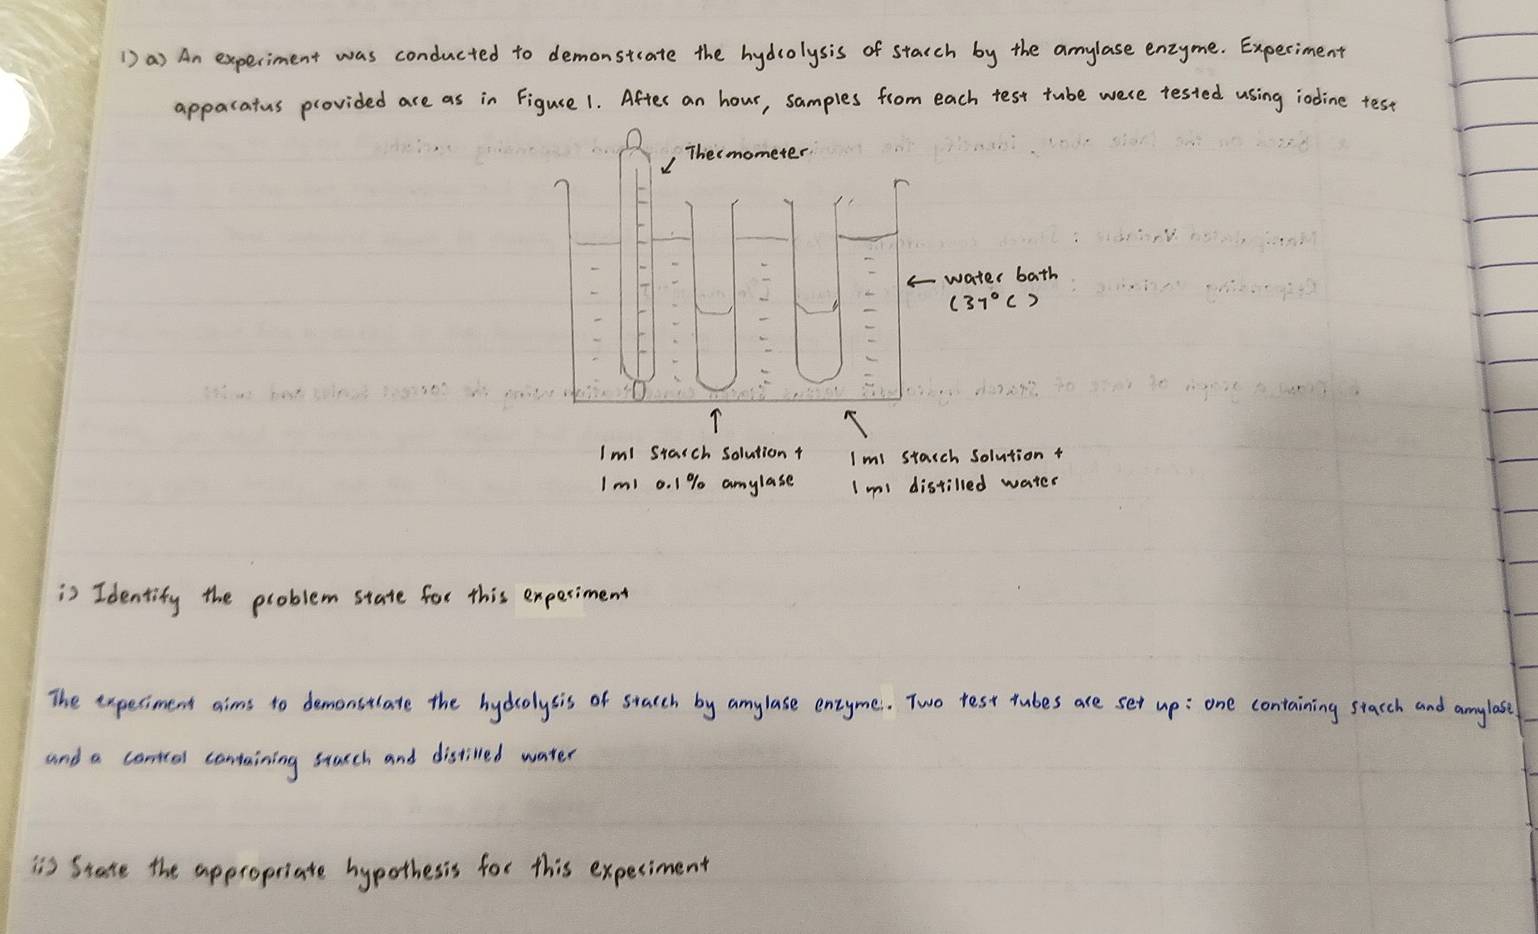 1) a) An experiment was conducted to demonstrate the hydrolysis of starch by the amylase enzyme. Experiment
apparatus provided are as in Figure 1. After an hour, samples from each test tube were tested using iodine test
Thermometer
water bath
(37°C)
1 ml starch solution +
1 ml 0.1% amylase
1 ml starch solution +
1 ml distilled water
i) Identify the problem state for this experiment
The experiment aims to demonstrate the hydrolysis of starch by amylase enzyme. Two test tubes are set up: one containing starch and amylase,
and a control containing starch and distilled water
ii) State the appropriate hypothesis for this experiment